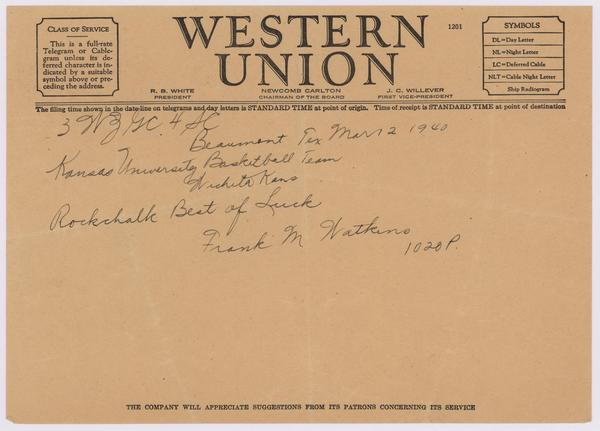 CLASS OF SERVICE
This is a full-rate
Telegram or Cable-
gram unless its de-
ferred character is in-
dicated by a suitable
symbol above or pre-
ceding the address.
WESTERN
UNION
1201
SYMBOLS
DL=Day Letter
NL=Night Letter
LC=Deferred Cable
NLT=Cable Night Letter
Ship Radiogram
R. B. WHITE
PRESIDENT
NEWCOMB CARLTON
CHAIRMAN OF THE BOARD
J. C. WILLEVER
FIRST VICE-PRESIDENT
The filing time shown in the date-line on telegrams and day letters is STANDARD TIME at point of origin. Time of receipt is STANDARD TIME at point of destination
3 WZ GC. 4 SC
Beaumont Tex Mar 12 1940
Kansas University Basketball Team
Wichita Kans
Rockchalk Best of Luck
Frank M Watkins
1020P.
THE COMPANY WILL APPRECIATE SUGGESTIONS FROM ITS PATRONS CONCERNING ITS SERVICE